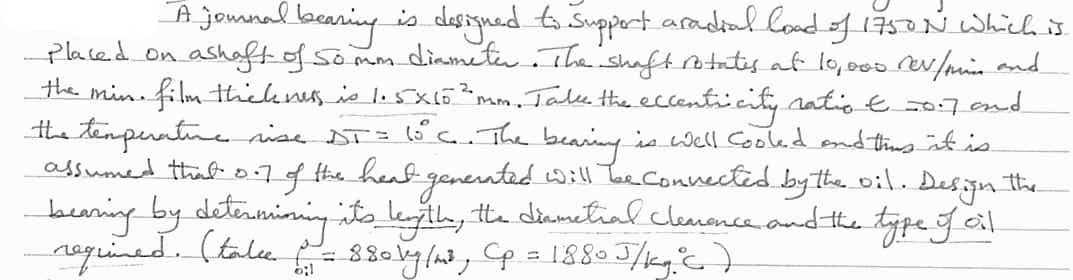 A journal bearing is designed to support a radial load of 1750 N which is
placed on a shaft of 50 mm diameter. The shaft rotates at 10,000 rev/min and
the min. film thickness is 1.5x10⁻² mm. Take the eccentricity ratio ε = 0.7 and
the temperature rise ΔT = 10°C. The bearing is well cooled and thus it is
assumed that 0.7 of the heat generated will be convected by the oil. Design the
bearing by determining its length, the diametral clearence and the type of oil
required. (take ρoil = 880 kg/m³, Cp = 1880 J/kg.°C)